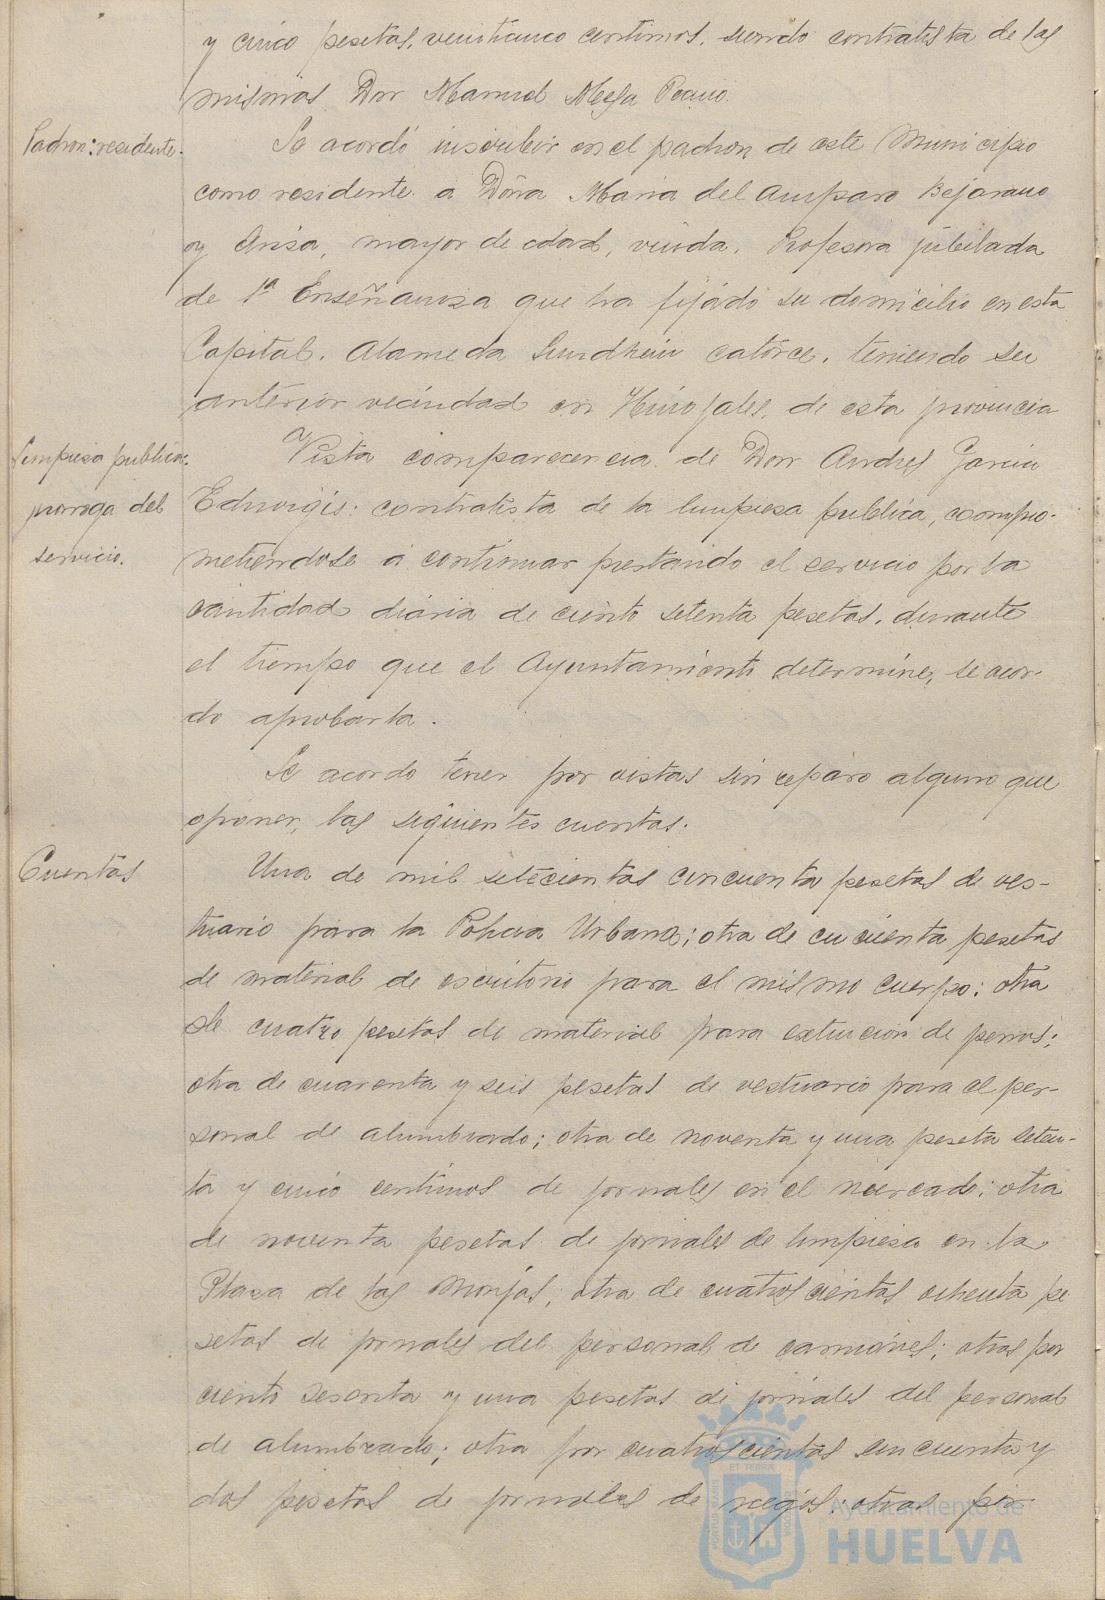 y cinco pesetas, veinticinco centimos, siendo contratista de las
mismas Don Manuel Mesa
Padron: residente.
Se acordó inscribir en el padron de este Municipio
como residente a Doña Maria del Amparo Bejarano
y Ariza, mayor de edad, viuda, Profesora jubilada
de 1ª Enseñanza que ha fijado su domicilio en esta
Capital, Alameda Sundhein catorce, teniendo su
anterior vecindad en Hinojales, de esta provincia
Limpieza publica.
prorroga del
servicio.
Vista comparecencia de Don Andres Garcia
Eduvigis: contratista de la limpieza publica, compro-
metiendose a continuar prestando el servicio por la
cantidad diaria de ciento setenta pesetas, durante
el tiempo que el Ayuntamiento determine, se acor-
do aprobarla.
Se acordo tener por vistas sin reparo alguno que
oponer, las siguientes cuentas.
Cuentas
Una de mil setecientas cincuenta pesetas de ves-
tuario para la Policia Urbana; otra de cincuenta pesetas
de material de escritorio para el mismo cuerpo; otra
de cuatro pesetas de material para extincion de perros;
otra de cuarenta y seis pesetas de vestuario para el per-
sonal de alumbrado; otra de noventa y una peseta seten-
ta y cinco centimos de jornales en el mercado; otra
de noventa pesetas de jornales de limpieza en la
Plaza de las Monjas; otra de cuatrocientas ochenta pe
setas de jornales del personal de camiones; otras por
ciento sesenta y una pesetas de jornales del personal
de alumbrado; otra por cuatrocientas cincuenta y
dos pesetas de jornales de riegos; otras por
Ayuntamiento de
HUELVA